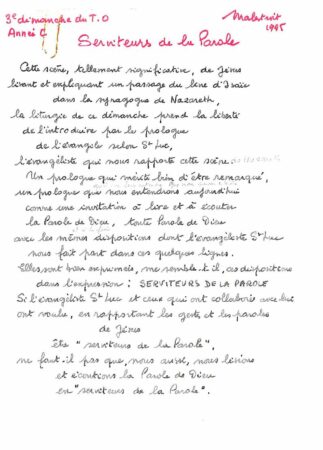 3e dimanche du T.O
Année C
Malestroit
1995
Serviteurs de la Parole
Cette scène, tellement significative, de Jésus
lisant et expliquant un passage du livre d'Isaïe
dans la synagogue de Nazareth,
la liturgie de ce dimanche prend la liberté
de l'introduire par le prologue
de l'évangile selon St Luc,
l'évangéliste qui nous rapporte cette scène
Un prologue qui mérite bien d'être remarqué,
un prologue que nous entendrons aujourd'hui
comme une invitation à lire et à écouter
la Parole de Dieu, toute Parole de Dieu
avec les mêmes dispositions dont l'évangéliste St Luc
nous fait part dans ces quelques lignes.
Elles sont bien exprimées, me semble-t-il, ces dispositions
dans l'expression : SERVITEURS DE LA PAROLE
Si l'évangéliste St Luc et ceux qui ont collaboré avec lui
ont voulu, en rapportant les gestes et les paroles
de Jésus
être "serviteurs de la Parole",
ne faut-il pas que, nous aussi, nous lisions
et écoutions la Parole de Dieu
en "serviteurs de la Parole".